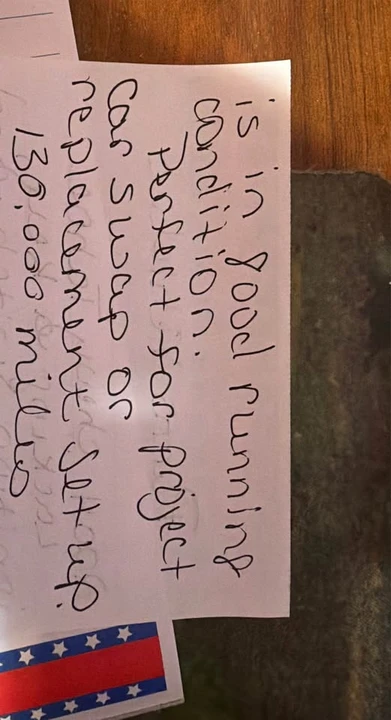 is in good running
condition.
Perfect for project
Car swap or
replacement set-up.
130,000 miles